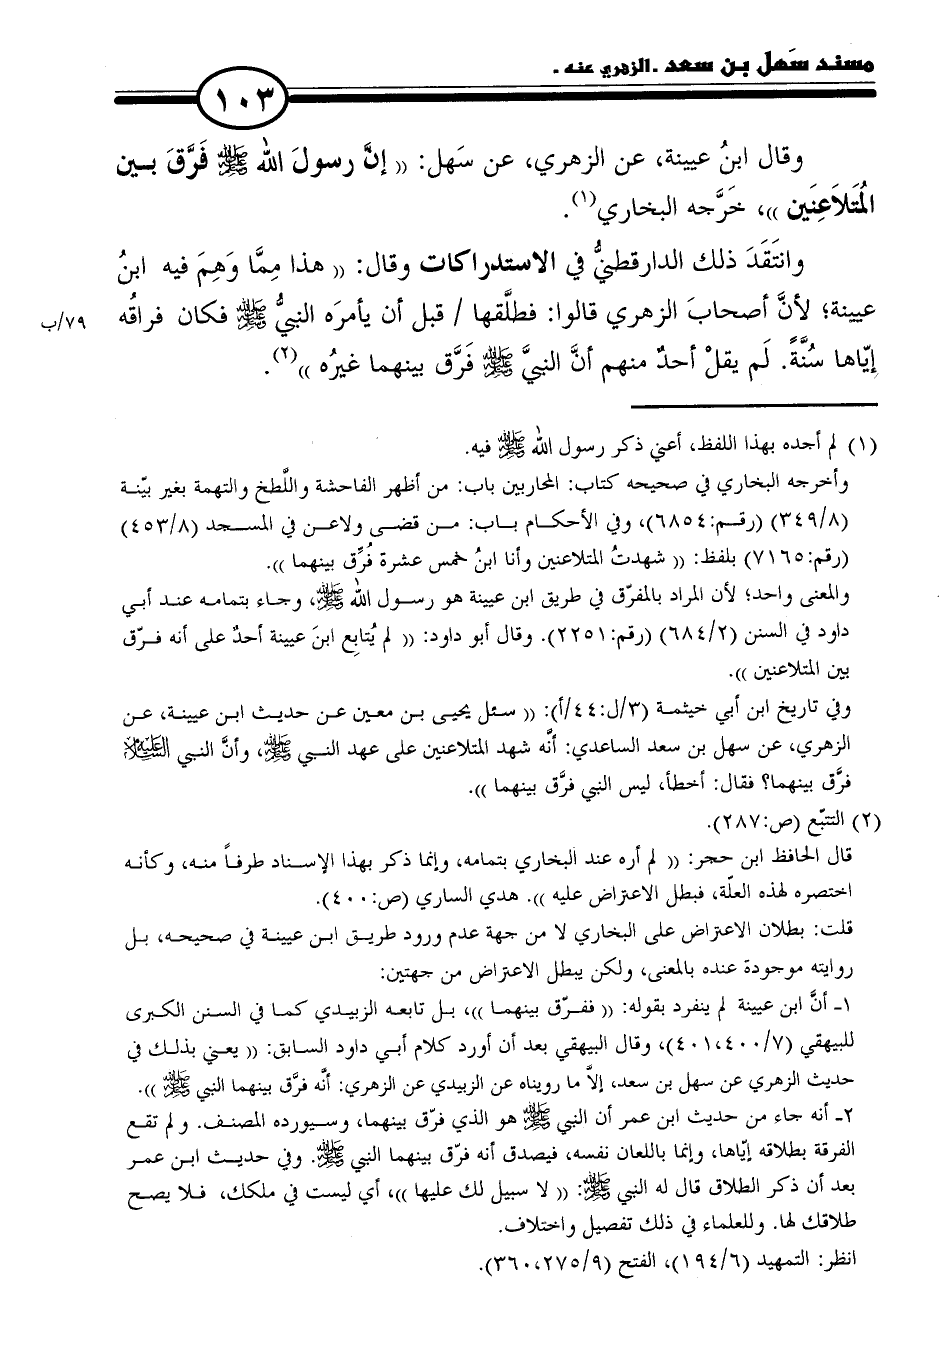 مسند سَهل بن سعد .الزهري عنه .
١٠٣
وقال ابنُ عيينة، عن الزهري، عن سَهل: (( إنَّ رسولَ الله ﷺ فَرَّقَ بـين
المُتَلاَعِنَين ))، خَرَّجه البخاري(١).
وانتَقَدَ ذلك الدارقطنيُّ في الاستدراكات وقال: (( هذا مِمَّا وَهِمَ فيه ابنُ
عيينة؛ لأنَّ أصحابَ الزهري قالوا: فطلَّقها / قبل أن يأمرَه النبيُّ ﷺ فكان فراقُه
٧٩/ب
إيّاها سُنَّةً. لَم يقلْ أحدٌ منهم أنَّ النبيَّ ﷺ فَرَّق بينهما غيرُه ))(٢).
(١) لم أجده بهذا اللفظ، أعني ذكر رسول الله ﷺ فيه.
وأخرجه البخاري في صحيحه كتاب: المحاربين باب: من أظهر الفاحشة واللَّطخ والتهمة بغير بيّنة
(٣٤٩/٨) (رقـم:٦٨٥٤)، وفي الأحكـام بـاب: مـن قضـى ولاعـن في المسـجد (٤٥٣/٨)
(رقم:٧١٦٥) بلفظ: (( شهدتُ المتلاعنين وأنا ابنُ خمس عشرة فُرِّق بينهما )).
والمعنى واحد؛ لأن المراد بالمفرّق في طريق ابن عيينة هو رسـول الله ﷺ، وجـاء بتمامـه عنـد أبـي
داود في السنن (٦٨٤/٢) (رقم:٢٢٥١). وقال أبو داود: (( لم يُتابِع ابنَ عيينة أحدٌ على أنه فـرّق
بين المتلاعنين )).
وفي تاريخ ابن أبي خيثمة (٣/ل:٤٤/أ): (( سـئل يحيـى بـن معـين عـن حديـث ابـن عيينـة، عـن
الزهري، عن سهل بن سعد الساعدي: أنَّه شهد المتلاعنين على عهد النبي ﷺ، وأنَّ النبي العَلَيْهِ السَّلَام
فرَّق بينهما؟ فقال: أخطأ، ليس النبي فرَّق بينهما )).
(٢) التتبّع (ص:٢٨٧).
قال الحافظ ابن حجر: (( لم أره عند البخاري بتمامه، وإنما ذكر بهذا الإسـناد طرفـاً منـه، وكأنـه
اختصره لهذه العلّة، فبطل الاعتراض عليه )). هدي الساري (ص:٤٠٠).
قلت: بطلان الاعتراض على البخاري لا من جهة عدم ورود طريق ابـن عيينـة في صحيحـه، بـل
روايته موجودة عنده بالمعنى، ولكن يبطل الاعتراض من جهتين:
١ـ أنَّ ابن عيينة لم ينفرد بقوله: (( ففـرّق بينهمـا ))، بـل تابعـه الزبيـدي كمـا في السـنن الكـبرى
للبيهقي (٤٠٠/٧،٤٠١)، وقال البيهقي بعد أن أورد كلام أبـي داود السـابق: (( يعـني بذلـك في
حديث الزهري عن سهل بن سعد، إلاَّ ما رويناه عن الزبيدي عن الزهري: أنَّه فرَّق بينهما النبي ﷺ )).
٢ـ أنه جاء من حديث ابن عمر أن النبي ﷺ هو الذي فرّق بينهما، وسـيورده المصنـف. ولم تقـع
الفرقة بطلاقه إيّاها، وإنما باللعان نفسه، فيصدق أنه فرّق بينهما النبي ﷺ. وفي حديـث ابـن عمـر
بعد أن ذكر الطلاق قال له النبي ﷺ: (( لا سبيل لك عليها ))، أي ليست في ملكك، فـلا يصـح
طلاقك لها. وللعلماء في ذلك تفصيل واختلاف.
انظر: التمهيد (١٩٤/٦)، الفتح (٢٧٥/٩،٣٦٠).